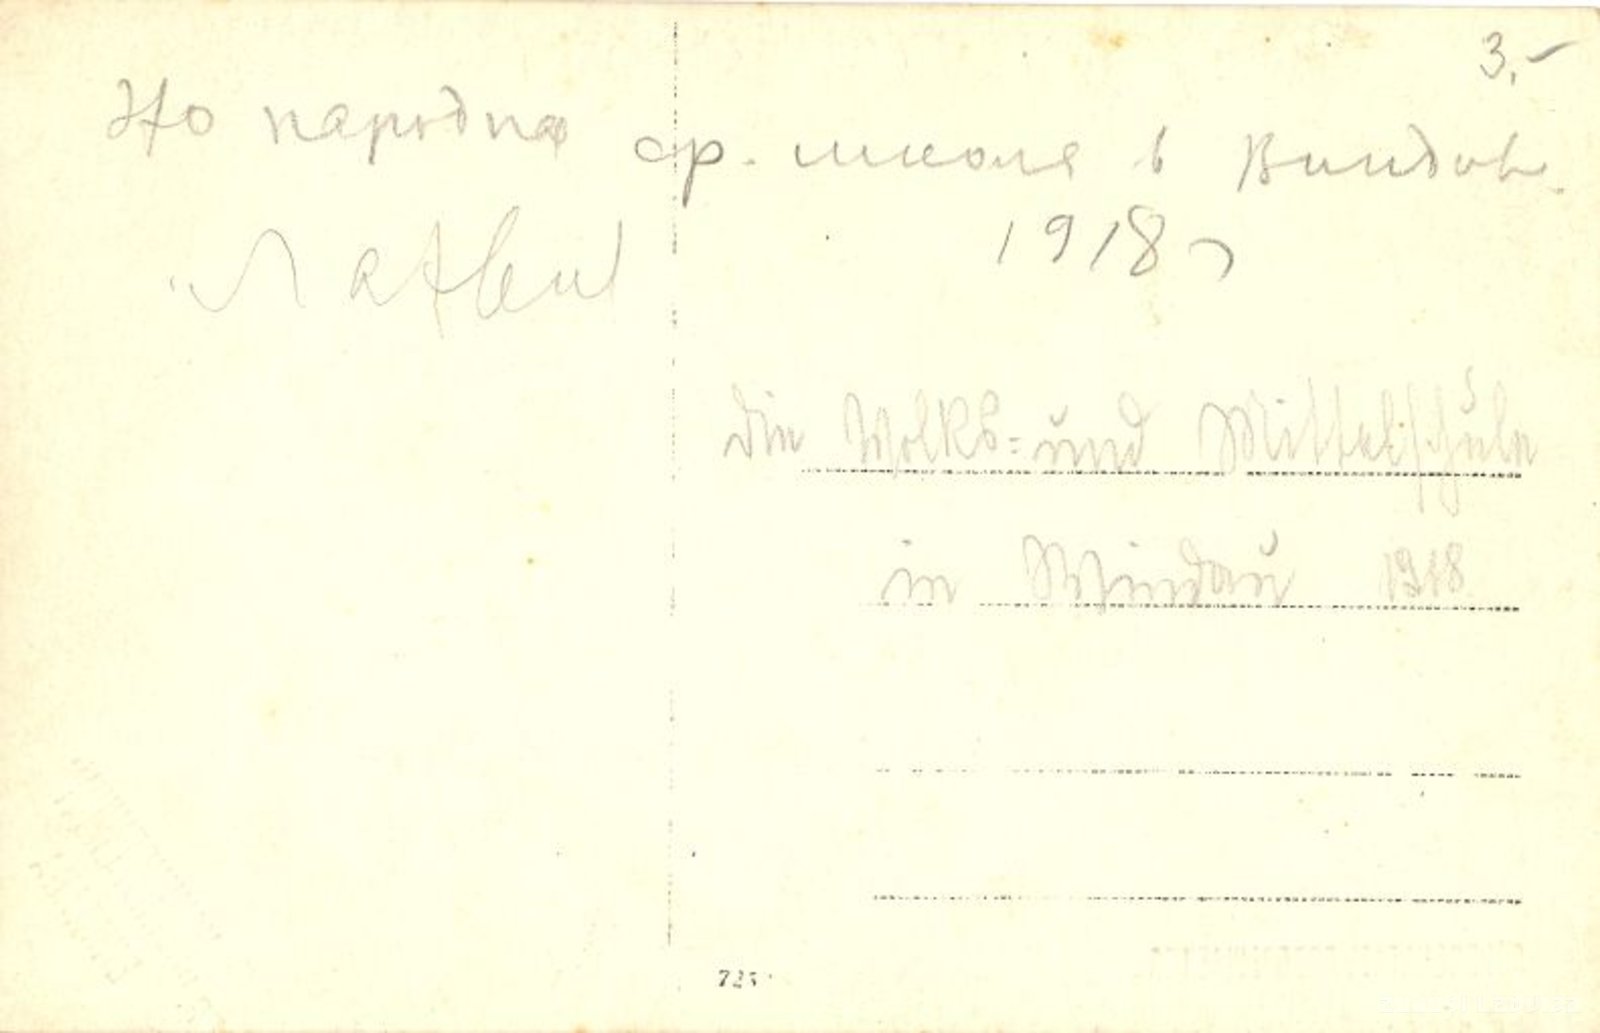 3,-
народная ср. школа в Виндав.
1918 г
Латвия
Die Volks- und Mittelschule
in Windau 1918